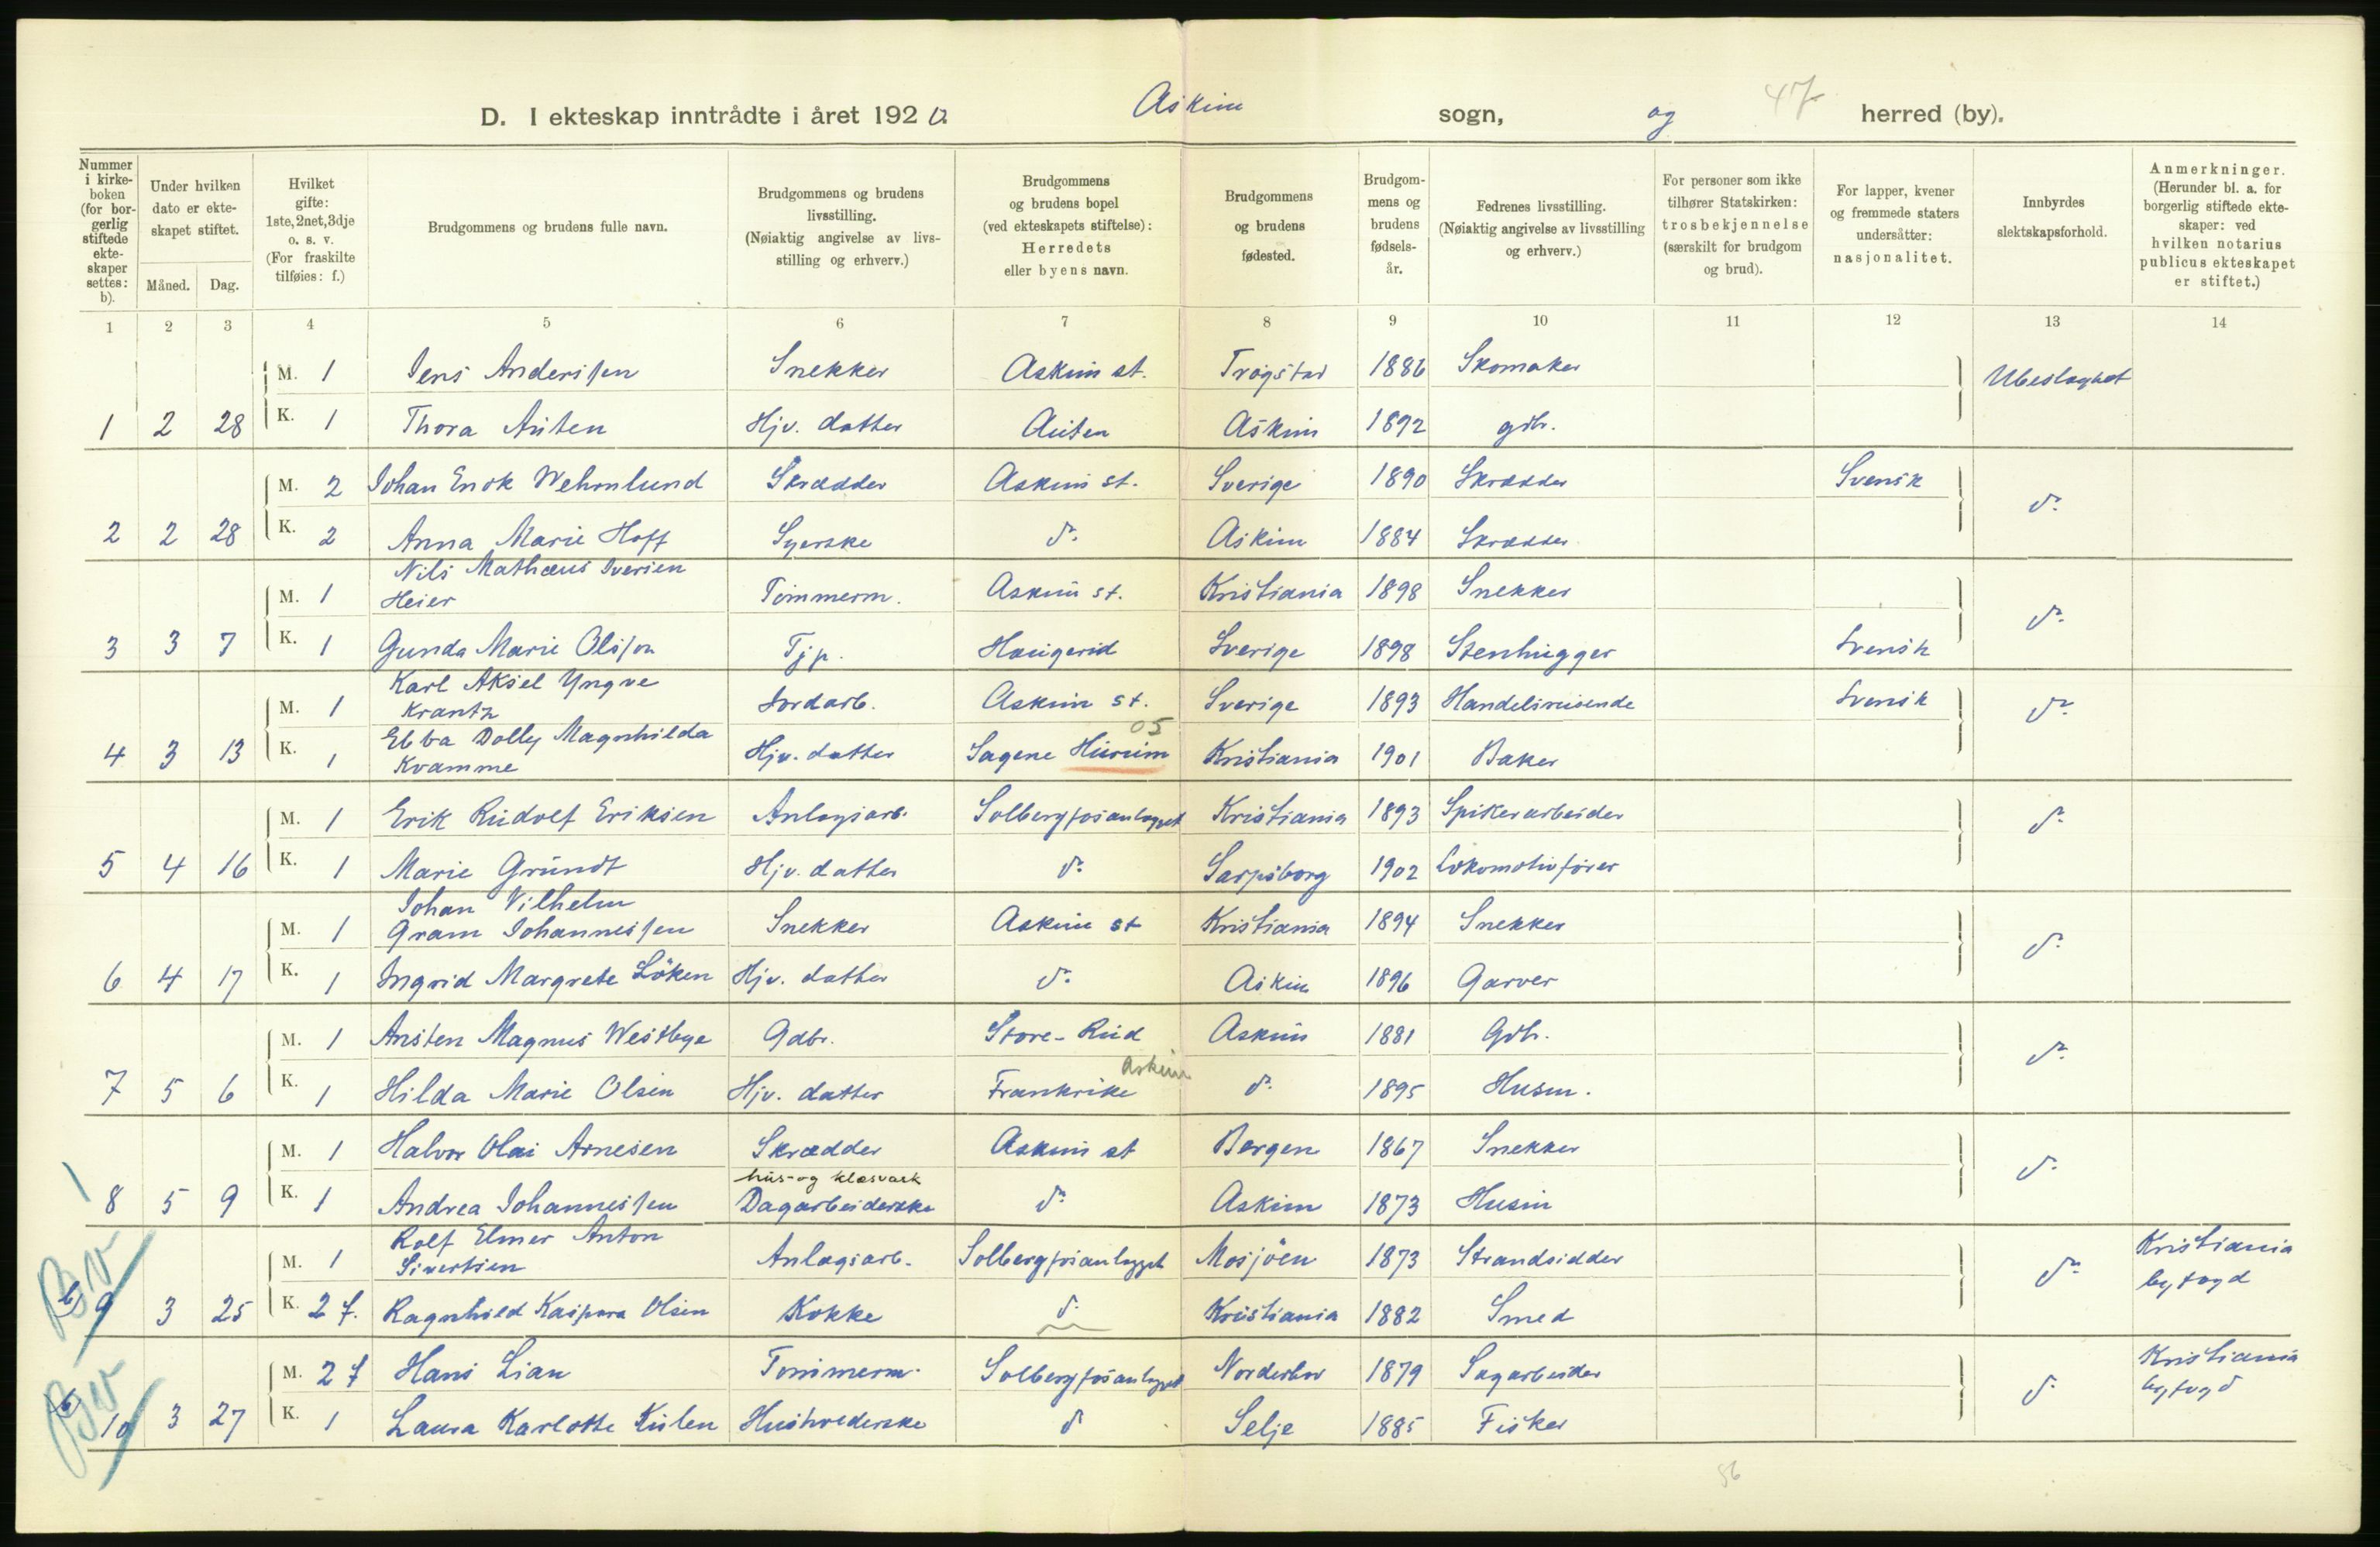 D. I ekteskap inntrådte i året 1920. Askim sogn, og 47 herred (by).
Nummer i kirkeboken (for borgerlig stiftede ekteskaper settes: b).
Under hvilken dato er ekteskapet stiftet.
Måned. Dag.
Hvilket gifte: 1ste, 2net, 3dje o. s. v. (For fraskilte tilføies: f.)
Brudgommens og brudens fulle navn.
Brudgommens og brudens livsstilling. (Nøiaktig angivelse av livsstilling og erhverv.)
Brudgommens og brudens bopel (ved ekteskapets stiftelse): Herredets eller byens navn.
Brudgommens og brudens fødested.
Brudgommens og brudens fødselsår.
Fedrenes livsstilling. (Nøiaktig angivelse av livsstilling og erhverv.)
For personer som ikke tilhører Statskirken: trosbekjennelse (særskilt for brudgom og brud).
For lapper, kvener og fremmede staters undersåtter: nasjonalitet.
Innbyrdes slektskapsforhold.
Anmerkninger. (Herunder bl. a. for borgerlig stiftede ekteskaper: ved hvilken notarius publicus ekteskapet er stiftet.)
1 2 3 4 5 6 7 8 9 10 11 12 13 14
M. 1 Jens Anderssen Snekker Askim st. Trøgstad 1886 Skomaker Ubeslægtet
1 2 28 K. 1 Thora Auten Hjv. datter Auten Askim 1892 gdb.
M. 2 Johan Enok Wehmlund Skrædder Askim st. Sverige 1890 Skrædder Svensk do
2 2 28 K. 2 Anna Marie Hoff Syerske do Askim 1884 Skrædder
Nils Mathæus Iversen
M. 1 Heier Tömmerm. Askim st. Kristiania 1898 Snekker do
3 3 7 K. 1 Gunda Marie Olsson Tjp. Haugerid Sverige 1898 Stenhugger Svensk
Karl Aksel Yngve
M. 1 Krantz Jordarb. Askim st. Sverige 1893 Handelsreisende Svensk do
Ebba Dolly Magnhilda 05
4 3 13 K. 1 Kvamme Hjv. datter Sagene Hurum Kristiania 1901 Baker
M. 1 Erik Rudolf Eriksen Anlagsarb. Solbergfosanlegget Kristiania 1893 Spikerarbeider do
5 4 16 K. 1 Marie Grundt Hjv. datter do Sarpsborg 1902 Lokomotivfører
Johan Vilhelm
M. 1 Gram Johannessen Snekker Askim st Kristiania 1894 Snekker do
6 4 17 K. 1 Ingrid Margrete Löken Hjv. datter do Askim 1896 Garver
M. 1 Ansten Magnus Westbye Gdbr. Store-Rud Askim 1881 Gdb. do
Askim
7 5 6 K. 1 Hilda Marie Olsen Hjv. datter Frankrike do 1895 Husm.
M. 1 Halvor Olai Arnesen Skrædder Askim st Bergen 1867 Snekker do
hus- og klesvask
8 5 9 K. 1 Andrea Johannessen Dagarbeiderske do Askim 1873 Husm
Rolf Elmer Anton Kristiania
M. 1 Sivertsen Anlagsarb. Solbergfosanlegget Mosjöen 1873 Strandsidder do byfogd
b 9 3 25 K. 2 f. Ragnhild Kaspara Olsen Kokke do Kristiania 1882 Smed
Kristiania
M. 2 f Hans Lian Tömmerm. Solbergfosanlegget Norderhov 1879 Sagarbeider do byfogd
b 10 3 27 K. 1 Laura Karlotte Kulen Husholderske do Selje 1885 Fisker
56